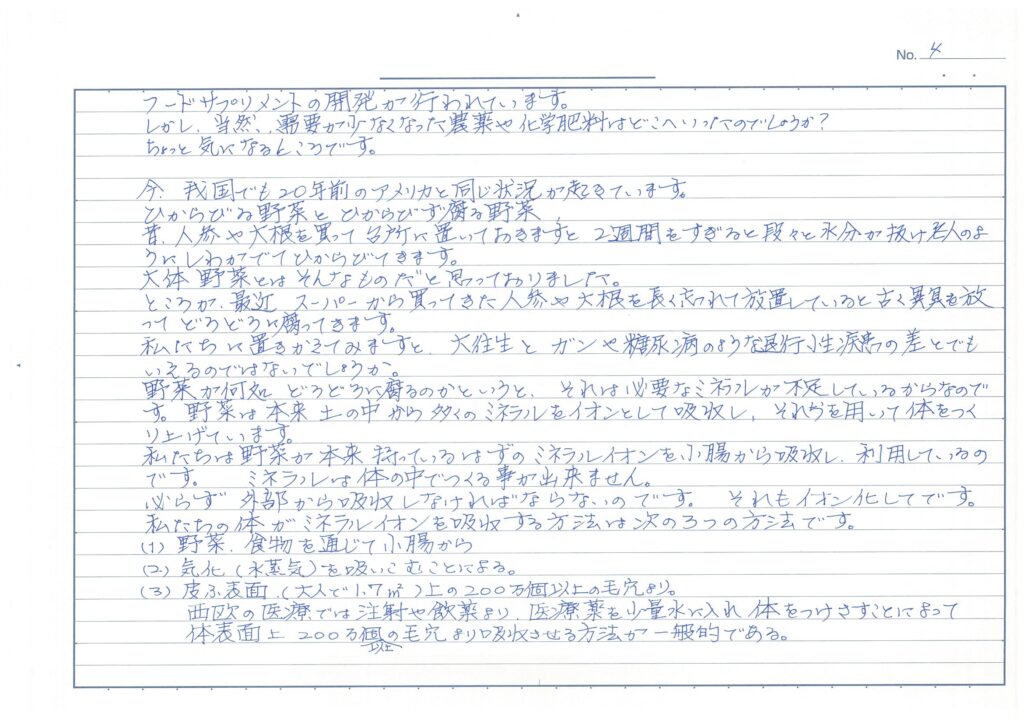 No. 4
フードサプリメントの開発が行われています。
しかし、当然、需要が少なくなった農薬や化学肥料はどこへいったのでしょうか?
ちょっと気になるところです。
今、我国でも20年前のアメリカと同じ状況が起きています。
ひからびる野菜とひからびず腐る野菜、
昔、人参や大根を買って台所に置いておきますと2週間をすぎると段々と水分が抜け老人のよ
うにしわがでてひからびてきます。
大体野菜とはそんなものだと思っておりました。
ところが、最近 スーパーから買ってきた人参や大根を長く忘れて放置していると古く異臭を放
って どろどろに腐ってきます。
私たちに置きかえてみますと、大往生と ガンや糖尿病のような退行性疾患の差とでも
いえるのではないでしょうか。
野菜が何処 どろどろに腐るのかというと、それは必要なミネラルが不足しているからなので
す。野菜は本来 土の中から多くのミネラルをイオンとして吸収し、それらを用いて体をつく
り上げています。
私たちは野菜が本来持っているはずのミネラルイオンを小腸から吸収し、利用しているの
です。 ミネラルは体の中でつくる事が出来ません。
必らず 外部から吸収しなければならないのです。 それもイオン化してです。
私たちの体がミネラルイオンを吸収する方法は次の3つの方法です。
(1) 野菜、食物を通じて小腸から
(2) 気化(水蒸気)を吸いこむことによる。
(3) 皮ふ表面(大人で1.7㎡)上の200万個以上の毛穴より。
西欧の医療では注射や飲薬より、医療薬を少量水に入れ 体をつけさすことによって
体表面上 200万個以上の毛穴より吸収させる方法が一般的である。